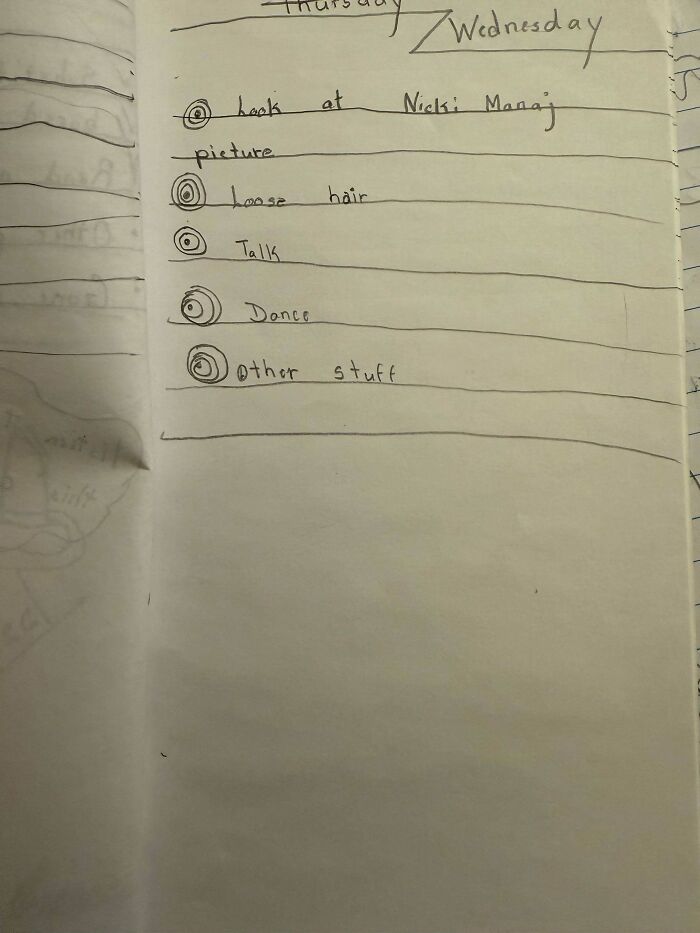 Thursday
Wednesday
Look at Nicki Manaj
picture
Loose hair
Talk
Dance
Other stuff